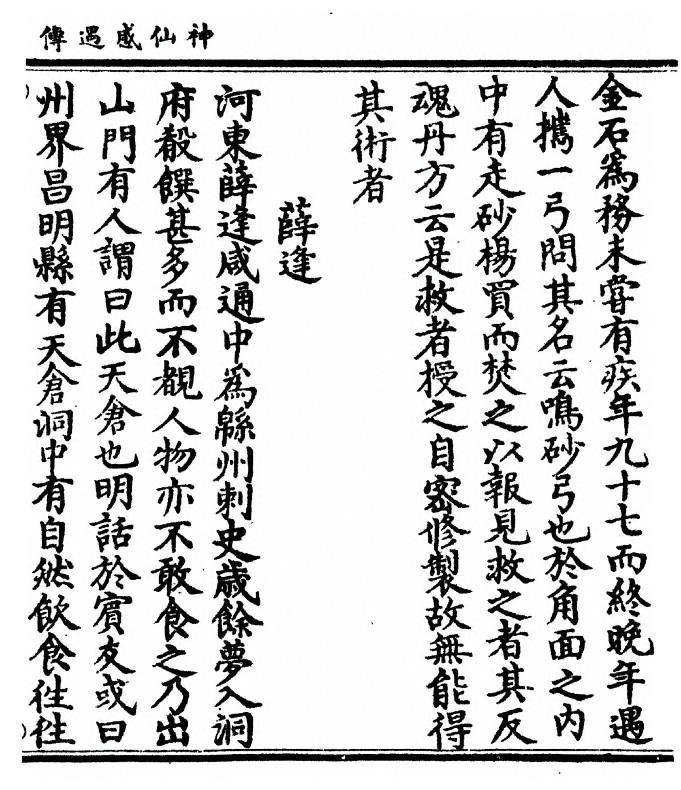 神仙感遇傳
金石爲務未嘗有疾年九十七而終晚年遇
人攜一弓問其名云鳴砂弓也於角面之內
中有走砂楊買而焚之以報見救之者其反
魂丹方云是救者授之自密修製故無能得
其術者
薛逢
河東薛逢咸通中爲緜州刺史歲餘夢入洞
府殽饌甚多而不覩人物亦不敢食之乃出
山門有人謂曰此天倉也明話於賓友或曰
州界昌明縣有天倉洞中有自然飲食往往